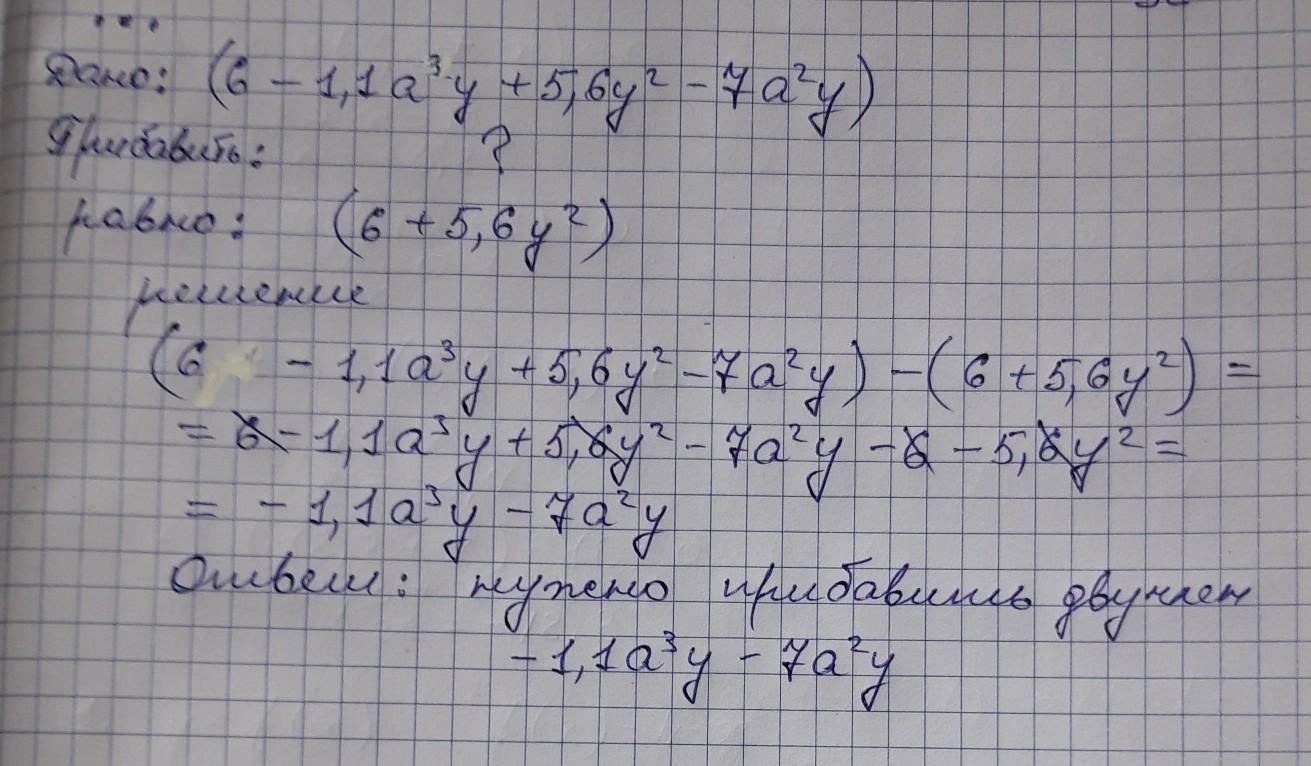 ...
Дано: (6 - 1,1a³y + 5,6y² - 7a²y)
Прибавить: ?
равно: (6 + 5,6y²)
решение
(6 - 1,1a³y + 5,6y² - 7a²y) - (6 + 5,6y²) =
= 6 - 1,1a³y + 5,6y² - 7a²y - 6 - 5,6y² =
= - 1,1a³y - 7a²y
Ответ: нужно прибавить двучлен
- 1,1a³y - 7a²y